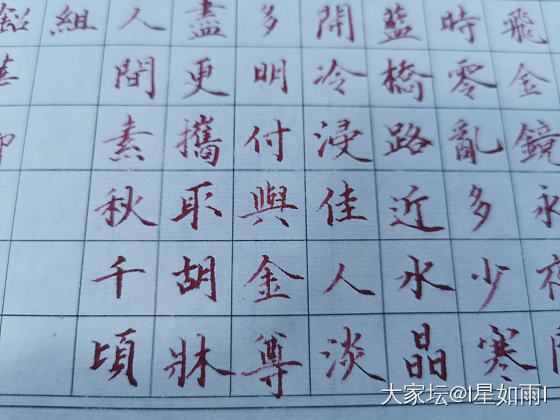 飛金鏡永夜
時零亂多少寒
藍橋路近水晶
開冷浸佳人淡
多明付與金尊
盡更攜取胡牀
人間素秋千頃
組
大家坛@I星如雨I